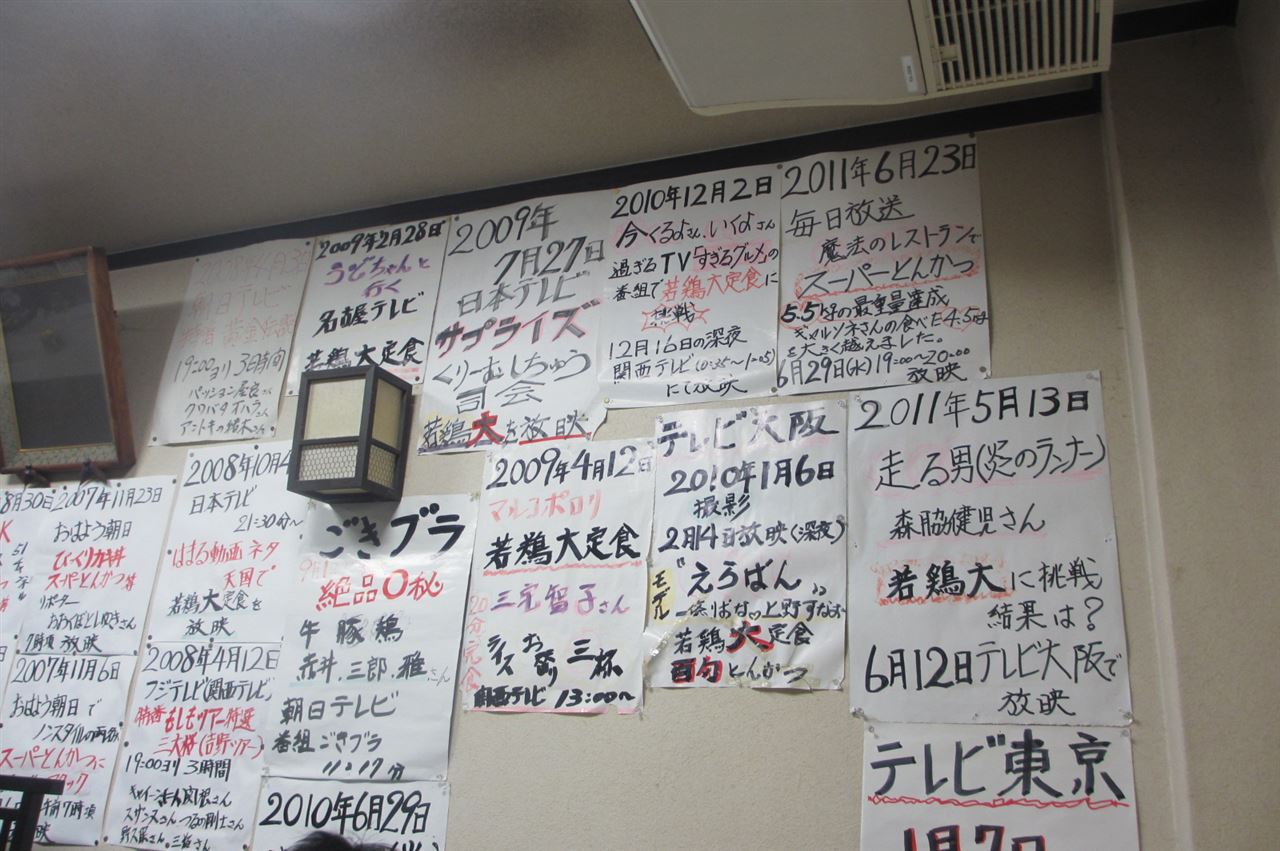 朝日テレビ
19:00ヨリ 3時間
2009年2月28日
うどちゃんと
行く
名古屋テレビ
若鶏大定食
2009年
7月27日
日本テレビ
サプライズ
くりーむしちゅう
司会
若鶏大を放映
2010年12月2日
今くるよさん、いくよさん
過ぎるTV「すぎるグルメ」の
番組で若鶏大定食に
挑戦
12月16日の深夜
関西テレビ(0:35〜1:05)
にて放映
2011年6月23日
毎日放送
魔法のレストランで
スーパーとんかつ
5.5kgの最重量達成
ギャルソネさんの食べた4.5kg
を大きく越えました。
6月29日(水)19:00〜20:00
放映
8月30日
2007年11月23日
おはよう朝日
びっくりカキ丼
スーパーとんかつ丼
リポーター
おおくぼとしゆきさん
7時頃放映
2008年10月4
日本テレビ
21:30分〜
はまる動画ネタ
天国で
若鶏大定食を
放映
ごきブラ
絶品○秘
牛豚鶏
赤井.三郎.雅さん
朝日テレビ
番組ごきブラ
11:17分
2009年4月12日
マルコポロリ
若鶏大定食
20分完食
三宅智子さん
ライス おかわり 三杯
関西テレビ 13:00〜
テレビ大阪
2010年1月6日
撮影
2月14日放映(深夜)
"えらばん"
モデル
若鶏大定食
百匁とんかつ
2011年5月13日
走る男(炎のランナー)
森脇健児さん
若鶏大に挑戦
結果は?
6月12日テレビ大阪で
放映
2007年11月6日
おはよう朝日で
ノンスタイルの両名が
スーパーとんかつに
2008年4月12日
フジテレビ(関西テレビ)
特番もしもツアー特選
三大様(吉野ツアー)
19:00ヨリ3時間
キャイーンさん関根さん
スザンヌさん つるの剛士さん
2010年6月29日
テレビ東京
1月7日